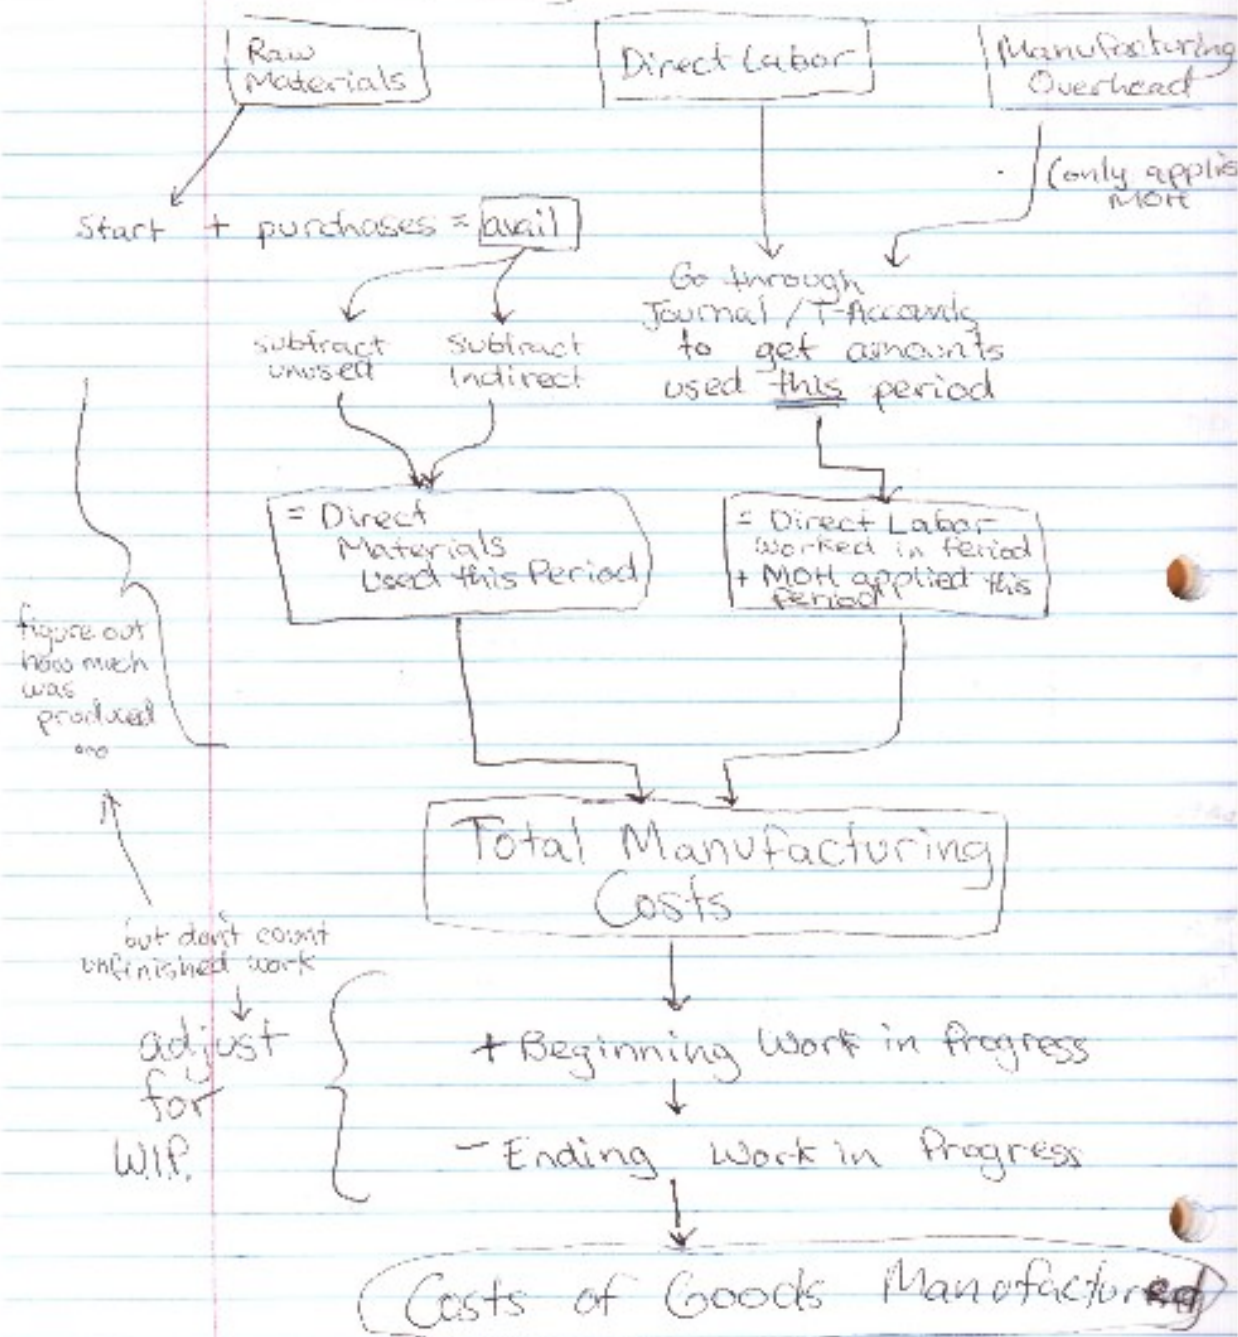 Raw
Materials
Direct Labor
Manufacturing
Overhead
(only applis
MOH
Start + purchases = avail
subtract
unused
Subtract
Indirect
Go through
Journal / T-Accounts
to get amounts
used this period
= Direct
Materials
Used this Period
= Direct Labor
Worked in Period
+ MOH applied this
Period
figure out
how much
was
produced
...
Total Manufacturing
Costs
but don't count
unfinished work
adjust
for
W.I.P.
+ Beginning Work in Progress
- Ending Work in Progress
Costs of Goods Manufactured